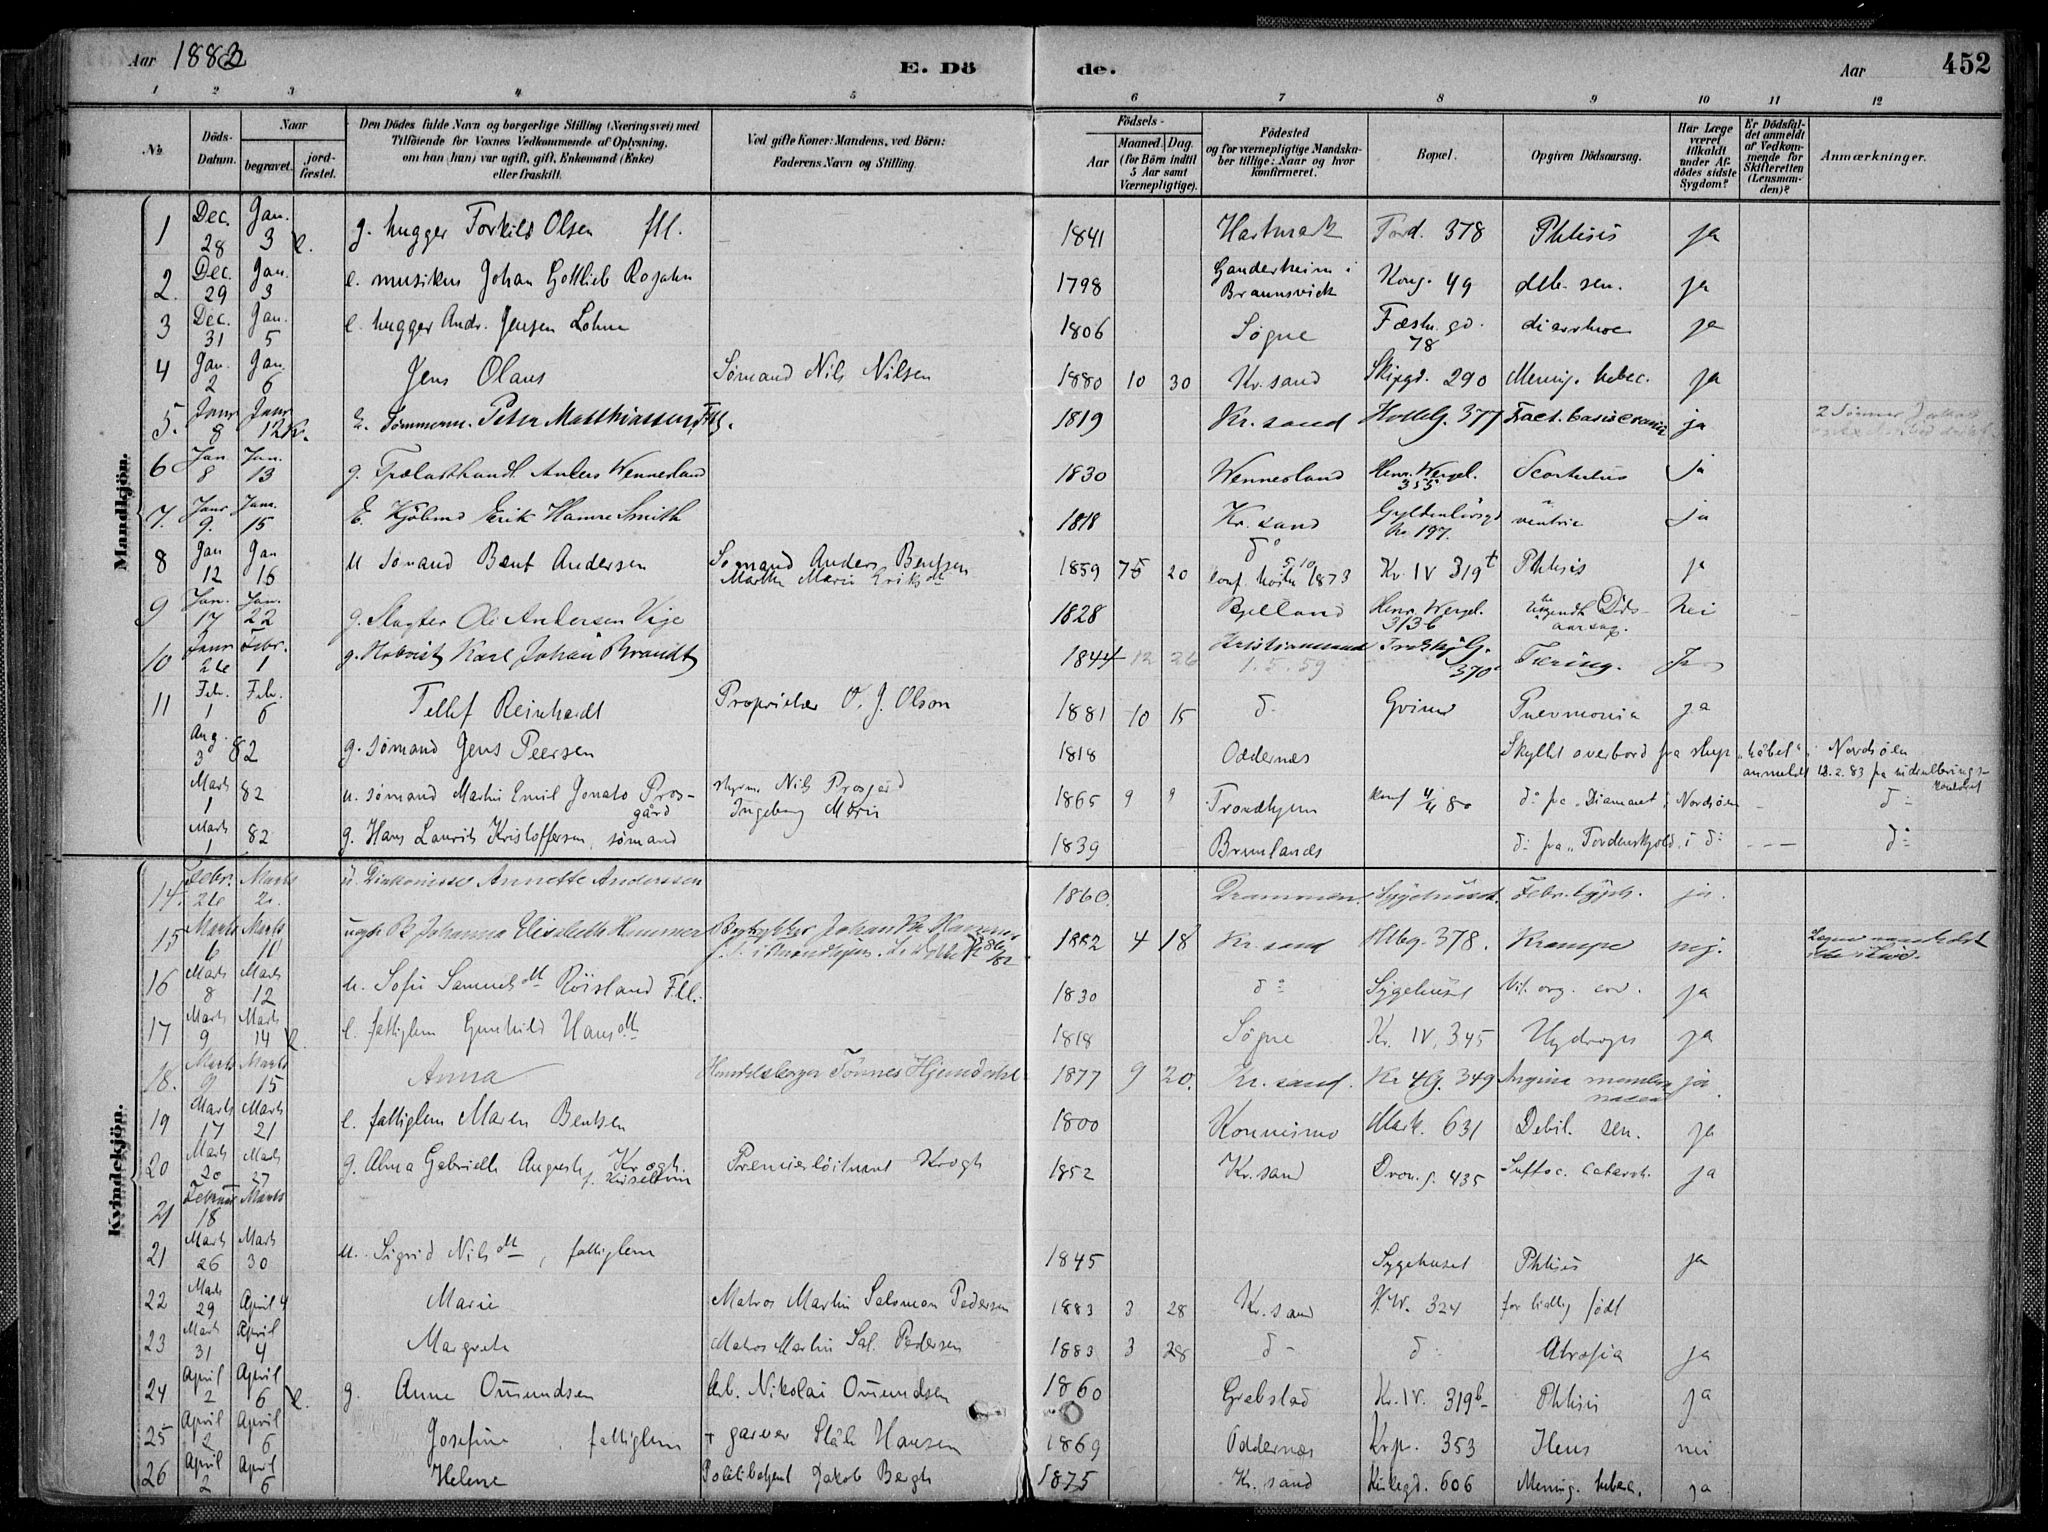 Aar 1883 E. Dö de. Aar 452
1 2 3 4 5 6 7 8 9 10 11 12
No. Döds-Datum. Naar begravet. jord-fæstet. Den Dödes fulde Navn og borgerlige Stilling (Næringsvei) med Tilföiende for Voxnes Vedkommende af Oplysning, om han (hun) var ugift, gift, Enkemand (Enke) eller fraskilt. Ved gifte Koner: Mandens, ved Börn: Faderens Navn og Stilling. Födsels- Aar Maaned. Dag. (for Börn indtil 5 Aar samt Værnepligtige). Födested og for værnepligtige Mandska-ber tillige: Naar og hvor konfirmeret. Bopæl. Opgiven Dödsaarsag. Har Læge været tilkaldt under Af-dödes sidste Sygdom? Er Dödsfal-det anmeldt af Vedkom-mende for Skifteretten (Lensman-den)? Anmærkninger.
Mandkjön.
1 Dec. 28 Jan. 3 g. hugger Torkild Olsen fll. 1841 Hartmark Tord. 378 Phtisis ja
2. Dec. 29 Jan. 3 e. musikus Johan Gottlieb Rojahn 1798 Ganderheim i Braunsvick Kong. 49 deb. sen. ja
3 Dec. 31 Jan. 5 e. hugger Andr. Jensen Lohne 1806 Søgne Fæstn. gd. 78 diarrhoe ja
4 Jan. 2 Jan. 6 Jens Olaus Sømand Nils Nilsen 1880 10 30 Kr. sand Skipgd. 290 Mening. tuberc. ja
5. Janr 8 Janr 12 E. Tømmerm. Peter Matthiassen, Fll. 1819 Kr. sand Holbg. 377 Fract. basis cranii ja 2 Sønner
6 Jan. 8 Jan. 13 g. Trælasthandl. Anders Wennesland 1830 Wennesland Henr. Wergel. 355 Scorbutus ja
7. Janr 9. Janr. 15 E. Kjöbmd Erik Hamre Smith 1818 Kr. sand Gyldenløvsgd No 197. ventric ja
8 Jan 12 Jan 16 u sømand Bent Andersen Sømand Anders Bentsen Marthe Marie Eriksdt 1859 5 20 do konf. 5/10 1873 Kr. IV 319 t Phtisis ja
9 Jan. 17 Jan. 22 g. Slagter Ole Andersen Vige 1828 Bjelland Henr. Wergel. 313b Dødsaarsag. nei
10 Janr 26 Febr. 1 g. Karl Johan Brandt 1844 12 26 Kristianssand 1.5.59 370 Tæring. Ja
11 Feb. 1 Feb. 6 Tellef Reinhardt Proprietær O. J. Olson 1881 10 15 do Gvimr Pnevmonia ja
Aug. 3 82 g. sømand Jens Peersen 1818 Oddernes Skyllet overbord fra skip "håbet" Nordsøen anmeldt 12.2.83 fra indrulleringskontoret
Marts 1 82 u. sømand Martin Emil Jonato Prosgård styrm Nils Prosgård Ingeborg Marie 1865 9 9 Trondhjem konf 4/4 80 do fra "Diamant" i Nordsøen - do
Marts 1 82 g. Hans Laurits Kristoffersen, sømand 1839 Brunlanes do fra "Tordenskjold" i do - - - do
Kvindekjön.
14. Febr. 26 Marts 2. u. Diakonisse Annette Anderssen 1860 Drammen Sygehuset. Febr. typh. ja.
15 Marts 6 Marts 11 Johanna Elisabeth Hammer Bogtrykker Johan Hammer 1882 4 18 Kr. sand Hlbg. 378. Krampe nej.
16 Marts 8 Marts 12 u. Sofie Samuelsdt Röisland Fll. 1830 do Sygehuset Vit. org. cor. ja
17 Marts 9 Marts 14 e. fattiglem Gunhild Hansdt 1818 Søgne Kr. IV. 345 Hydrops ja
18. Marts 9 Marts 15 Anna Handelsborger Tönnes 1877 9 20. Kr. sand. Kr 4G. 349 Angina membranacea ja.
19 Marts 17 Marts 21 e. fattiglem Maren Bentsen 1800 Konnismo Mark. 631 Debil. sen. ja
20 Marts 20 Marts 27 g. Alma Gabrielle Augusta Krogh. f. Premierløitnant Krogh 1852 Kr. sand Dron. g. 435 Suffoc. catarrh. ja
21 Februar 18 Marts
21 Marts 26 Marts 30 u. Sigrid Nilsdt, fattiglem 1845 Sygehuset Phtisis ja
22 Marts 29 April 4 Marie Matros Martin Salomon Pedersen 1883 3 28 Kr. sand 324 for tidlig født
23 Marts 31 April 4 Margrete Matros Martin Sal. Pedersen 1883 3 28 do do Atrofia ja
24 April 2 April 6 g. Anne Omundsen Arb. Nikolai Omundsen 1860 Grebstad Kr. IV. 319b Phtisis ja
25 April 2 April 6 Josefine, fattiglem + garver Ståle Hansen 1869 Oddernes Krp. 353 Ileus nei
26 April 2 April 6 Helene Politibetjent Jakob Bergh 1875 Kr. sand Kirkegd. 606 Mening. tuberc. ja